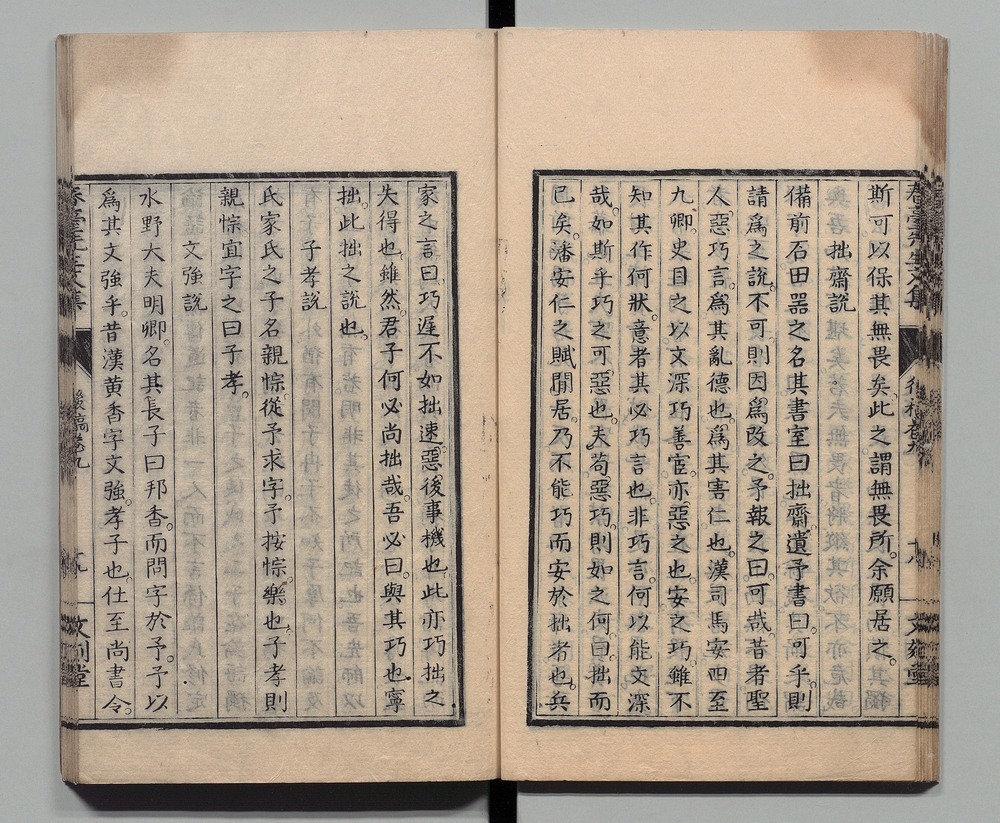 斯可以保其無畏矣此之謂無畏所。余願居之。
拙齋説
備前石田器之名其書室曰拙齋。遺予書曰可乎。則
請爲之説。不可。則因爲改之。予報之曰。可哉。昔者聖
人惡巧言。爲其亂德也。爲其害仁也。漢司馬安四至
九卿。史目之以文深巧善宦。亦惡之也。安之巧。雖不
知其作何狀。意者其必巧言也。非巧言。何以能文深
哉。如斯乎巧之可惡也。夫苟惡巧。則如之何。曰。拙而
已矣。潘安仁之賦閒居。乃不能巧而安於拙者也。兵
家之言曰。巧遲不如拙速。惡後事機也。此亦巧拙之
失得也。雖然。君子何必尚拙哉。吾必曰。與其巧也。寧
拙。此拙之說也。
子孝說
氏家氏之子名親悰。從予求字。予按悰。樂也。子孝則
親悰。宜字之曰子孝。
文強說
水野大夫明卿。名其長子曰邦香。而問字於予。予以
爲其文強乎。昔漢黄香字文強。孝子也。仕至尚書令。
後稿卷九
文刻堂